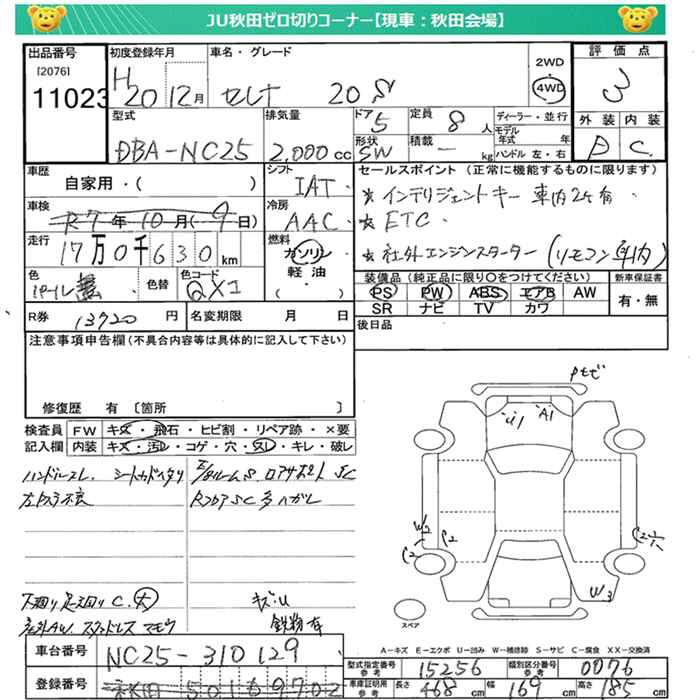 JU秋田ゼロ切りコーナー【現車：秋田会場】
出品番号
[2076]
11023
初度登録年月
H20 12月
車名・グレード
セレナ 20S
2WD
4WD
評価点
3
外装 内装
D C
型式
DBA-NC25
排気量
2,000cc
ドア
5
形状
SW
定員
8人
積載
－ kg
ディーラー・並行
モデル年式 年
ハンドル 左・右
車歴
自家用・( )
シフト
IAT
車検
R7年10月(9日)
冷房
AAC
走行
17万0千630km
燃料
ガソリン
軽油
( )
色
パール
色替
色コード
QX1
セールスポイント（正常に機能するものに限ります）
☆インテリジェントキー 車内2ヶ有
☆ETC
☆社外エンジンスターター(リモコン車内)
装備品（純正品に限り○をつけてください）
PS PW ABS エアB AW
SR ナビ TV カワ
新車保証書
有・無
R券 13920円
名変期限 月 日
後日品
注意事項申告欄（不具合内容等は具体的に記入して下さい）
修復歴 有〔箇所 〕
検査員記入欄
FW キズ・飛石・ヒビ割・リペア跡・×要
内装 キズ・汚レ・コゲ・穴・スレ・キレ・破レ
ハンドルスレ シートカドヘタリ
ロアサポート SC
RフロアSC多ハガレ
下廻り足廻りC大 キズ・U
社外AW スタッドレス 鉄粉有
U1 A1
W2 P2
C2
W3
スペア
A－キズ E－エクボ U－凹み W－補修跡 S－サビ C－腐食 XX－交換済
車台番号
NC25-310129
登録番号
秋田 501 ほ 9702
型式指定番号 参考
15256
類別区分番号 参考
0076
車庫証明用 参考
長さ 468cm 幅 169cm 高さ 185cm